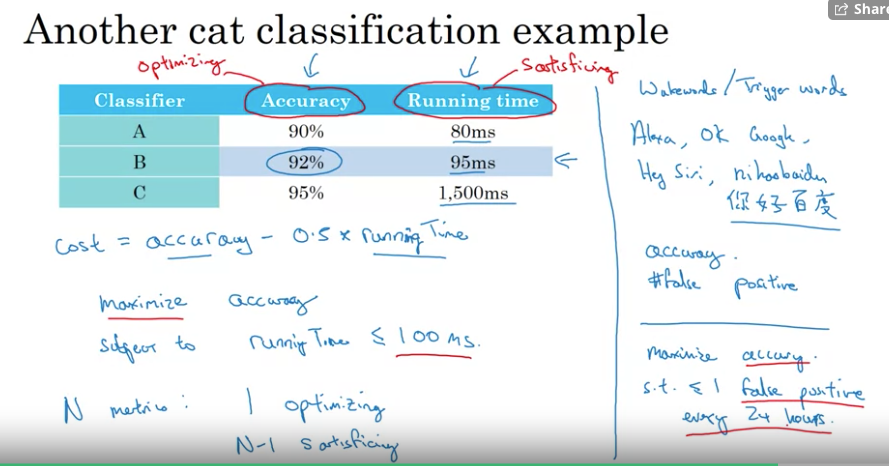 Share
Another cat classification example
optimizing
Satisficing
Classifier Accuracy Running time
A 90% 80ms
B 92% 95ms
C 95% 1,500ms
cost = accuracy - 0.5 x running Time
maximize accuracy
subject to running Time ≤ 100 ms.
N metrics: 1 optimizing
N-1 satisficing
Wakewords / Trigger words
Alexa, OK Google,
Hey Siri, nihaobaidu
你好百度
accuracy.
#false positive
maximize accuracy.
s.t. ≤ 1 false positive
every 24 hours.